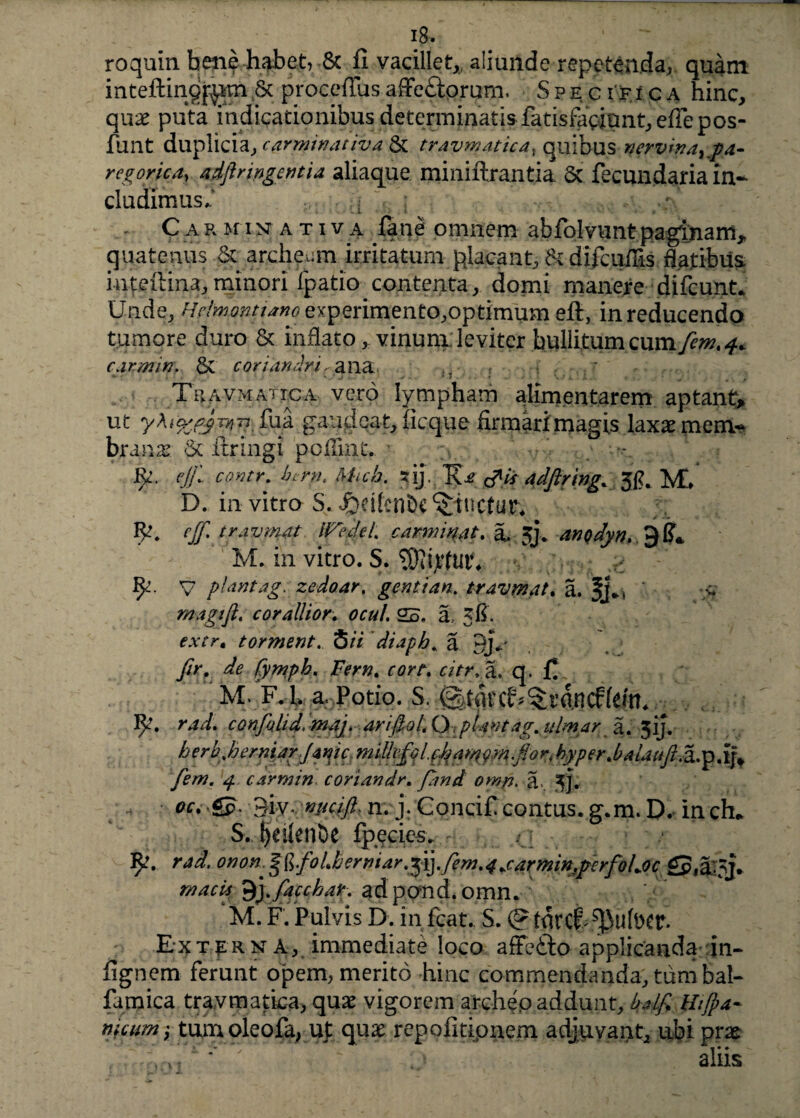 18.
roquin bene habet, & ſi vacillet, aliunde repetenda, quàm
inteſtinorum & proceſſus affectorum. SPECIFICA hinc,
quæ puta indicationibus determinatis ſatisfaciunt, eſſe pos-
ſunt duplicia, carminativa & travmatica, quibus nervina, pa-
regorica, adſtringentia aliaque miniſtrantia & ſecundaria in-
cludimus.
CARMINATIVA ſanè omnem abſolvunt paginam,
quatenus & archeum irritatum placant, & diſcuſſis flatibus
inteſtina, minori ſpatio contenta, domi manere diſcunt.
Unde, Helmontiano experimento, optimum eſt, in reducendo
tumore duro & inflato, vinum leviter bullitum cum ſem. 4.
carmin. & coriandri ana
TRAVMATICA verò lympham alimentarem aptant,
ut γλιχρότητι ſuâ gaudeat, ſicque firmari magis laxæ mem-
branæ & ſtringi poſſint.
℞. eſſ. contr. hern. Mich. ʒij. ♂is adſtring. ʒß. M.
D. in vitro S. Heilende Tinctur.
℞. eſſ. travmat Wedel. carminat. a. ʒj. anodyn. ℈ß.
M. in vitro. S. Mixtur.
℞. ▽ plantag. zedoar. gentian. travmat. a. ℥j.
magiſt. corallior. ocul. ♋. a. ʒß.
extr. torment. ♁ii diaph. a ℈j.
ſir. de ſymph. Fern. cort. citr. a. q. ſ.
M. F. l. a. Potio. S. Starck-Trancklein.
℞. rad. conſolid. maj. ariſtol. O. plantag. ulmar a. ʒij.
herb. herniar. ſanic. millefol. chamom. flor. hyper. balauſt. a. p. ij.
ſem. 4 carmin. coriandr. ſænd omn. a. ʒj.
oc. ♋. ℈iv. nuciſt. n. j. Conciſ. contus. g. m. D. in ch.
S. heilende ſpecies.
℞. rad. onon. ℥ß. fol. herniar. ʒij. ſem. 4. carmin, perfol. oc ♋, a. ʒj.
macis ℈j. ſacchar. ad pond. omn.
M. F. Pulvis D. in ſcat. S. Starck-Pulver.
EXTERNA, immediatè loco affecto applicanda in-
ſignem ferunt opem, meritò hinc commendanda, tùm bal-
ſamica travmatica, quæ vigorem archeo addunt, balſ. Hiſpa-
nicum; tum oleoſa, ut quæ repoſitionem adjuvant, ubi præ
aliis